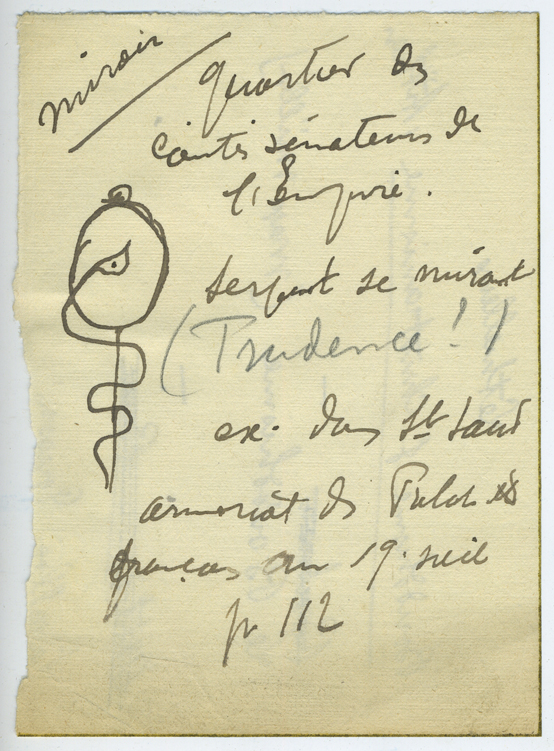 miroir
quartier des
comtes sénateurs de
l'Empire.
serpent se mirant
(Prudence!)
ex. dans St Saud
armorial des Prélats
français au 19. siècle
p 112